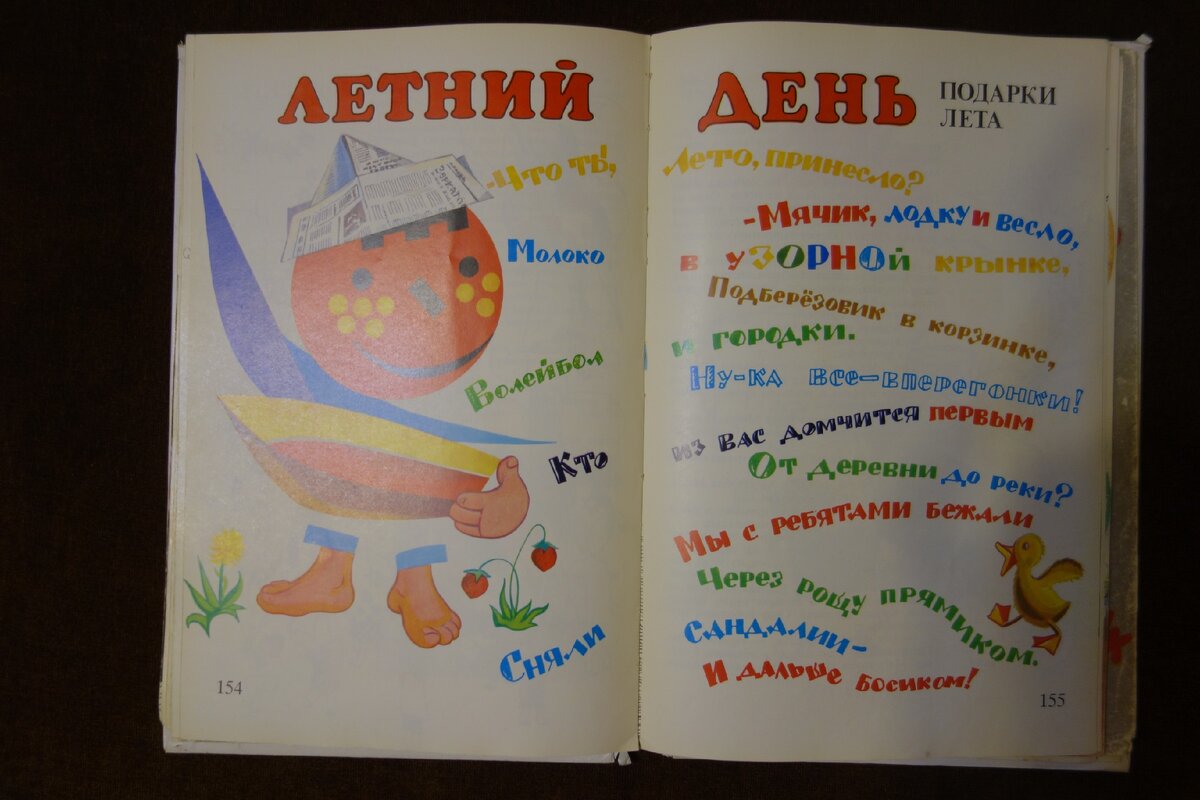 ЛЕТНИЙ ДЕНЬ
ПОДАРКИ
ЛЕТА
-Что ты, Лето, принесло?
-Мячик, лодку и весло,
Молоко в узорной крынке,
Подберёзовик в корзинке,
Волейбол и городки.
Ну-ка все—вперегонки!
Кто из вас домчится первым
От деревни до реки?
Мы с ребятами бежали
Через рощу прямиком.
Сняли сандалии-
И дальше босиком!
154
155